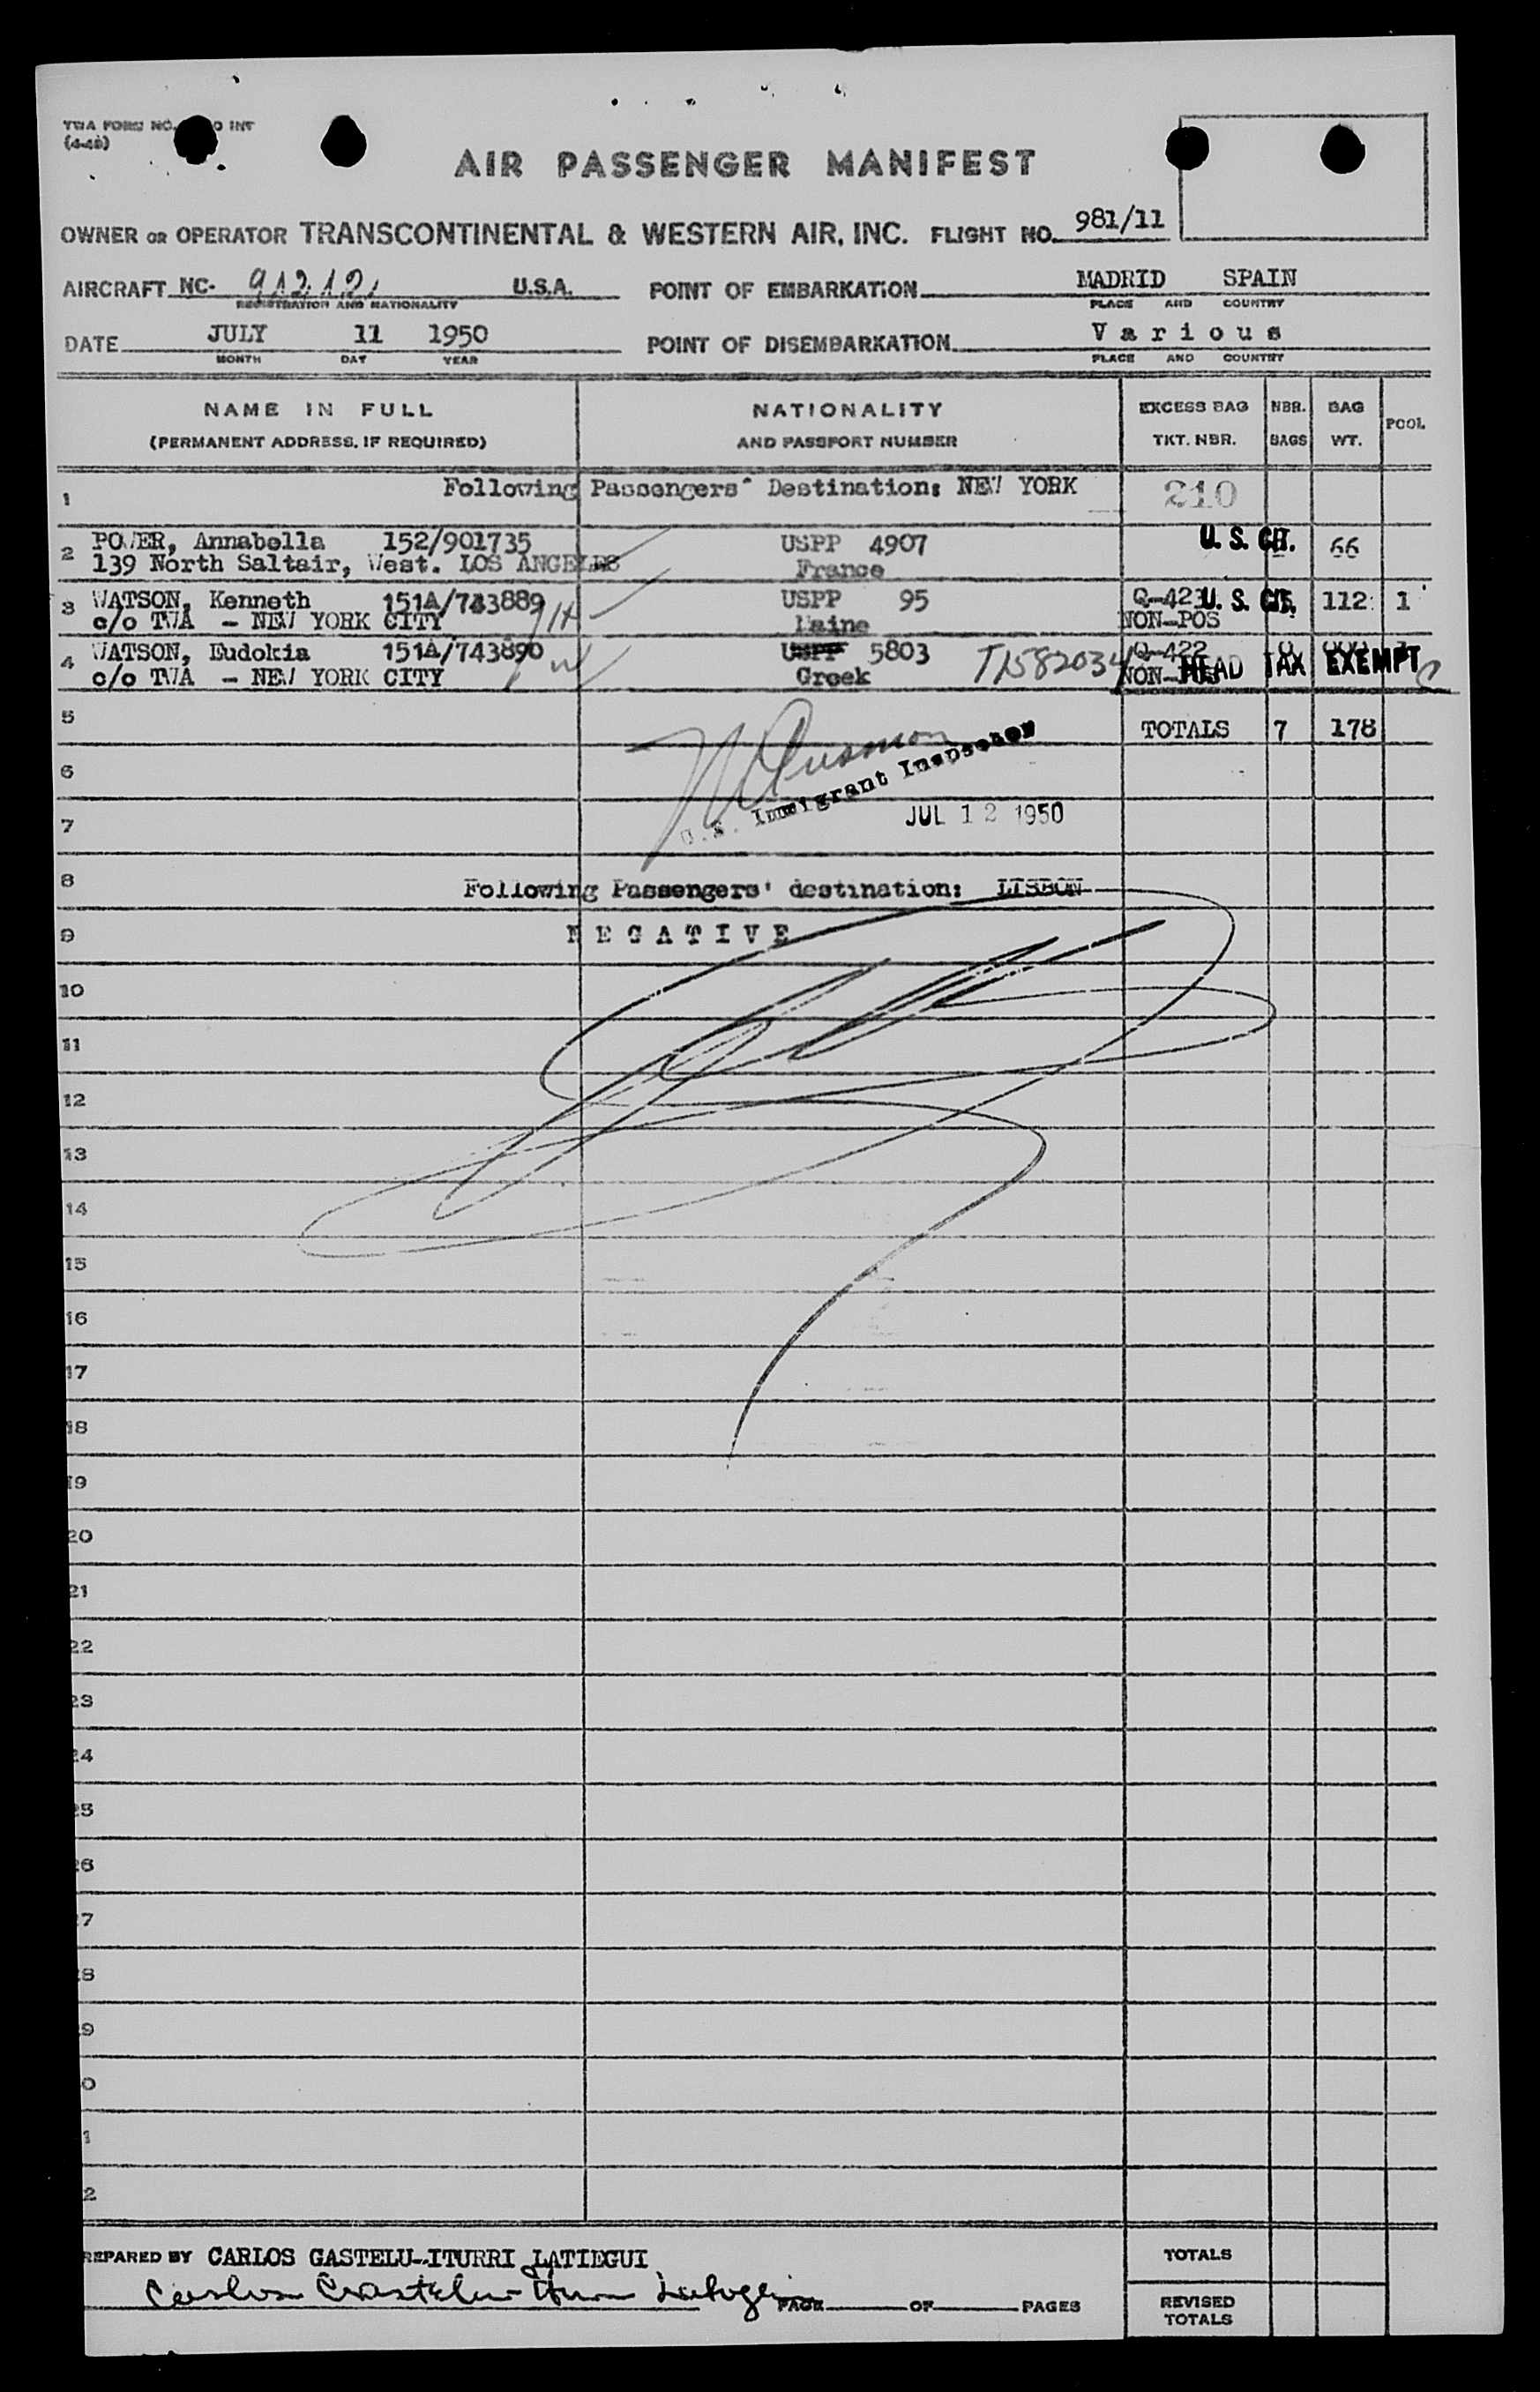 (4-48)
AIR PASSENGER MANIFEST
OWNER OR OPERATOR TRANSCONTINENTAL & WESTERN AIR, INC. FLIGHT NO. 981/11
AIRCRAFT NC- 91212 U.S.A. POINT OF EMBARKATION MADRID SPAIN
REGISTRATION AND NATIONALITY PLACE AND COUNTRY
DATE JULY 11 1950 POINT OF DISEMBARKATION Various
MONTH DAY YEAR PLACE AND COUNTRY
NAME IN FULL NATIONALITY EXCESS BAG NBR. BAG POOL
(PERMANENT ADDRESS, IF REQUIRED) AND PASSPORT NUMBER TKT. NBR. BAGS WT.
1 Following Passengers' Destination: NEW YORK 210
2 POWER, Annabella 152/901735 USPP 4907 U. S. CIT. 66
139 North Saltair, West. LOS ANGELES France
3 WATSON, Kenneth 151A/743889 USPP 95 Q-423 U. S. CIT. 112 1
c/o TWA - NEW YORK CITY Maine NON-POS
4 WATSON, Eudokia 151A/743890 USPP 5803 T1582034 Q-422
c/o TWA - NEW YORK CITY Greek NON-POS HEAD TAX EXEMPT
5 TOTALS 7 178
6
U.S. Immigrant Inspector
7 JUL 12 1950
8 Following Passengers' destination: LISBON
9 NEGATIVE
10
11
12
13
14
15
16
17
18
19
20
21
22
23
24
25
26
27
28
29
0
1
2
PREPARED BY CARLOS GASTELU-ITURRI LATIEGUI TOTALS
Carlos Gastelu-Iturri Latiegui PAGE OF PAGES REVISED
TOTALS